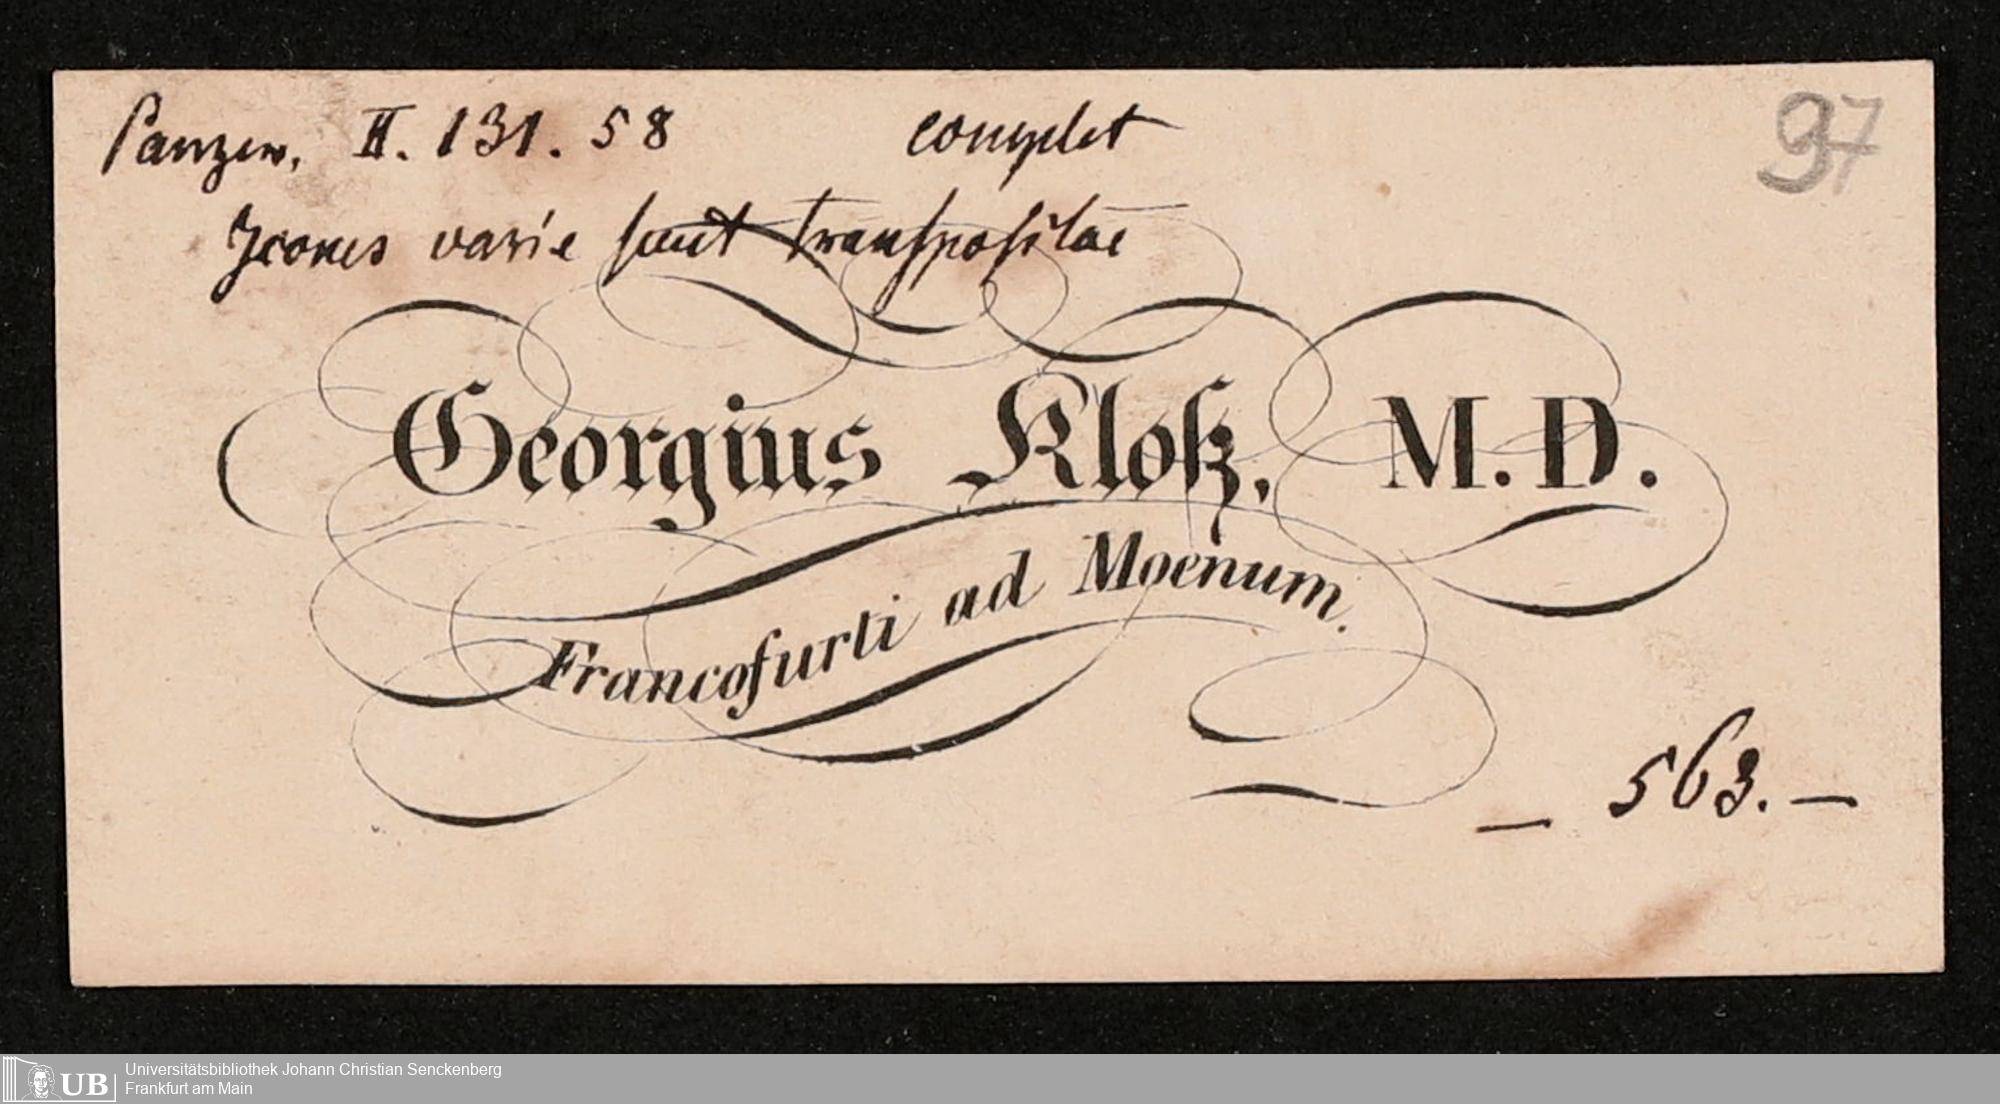 Panzer, II. 131. 58 complet 97
Icones varie sunt transpositae
Georgius Kloß, M. D.
Francofurti ad Moenum.
– 563. –
UB Universitätsbibliothek Johann Christian Senckenberg
Frankfurt am Main